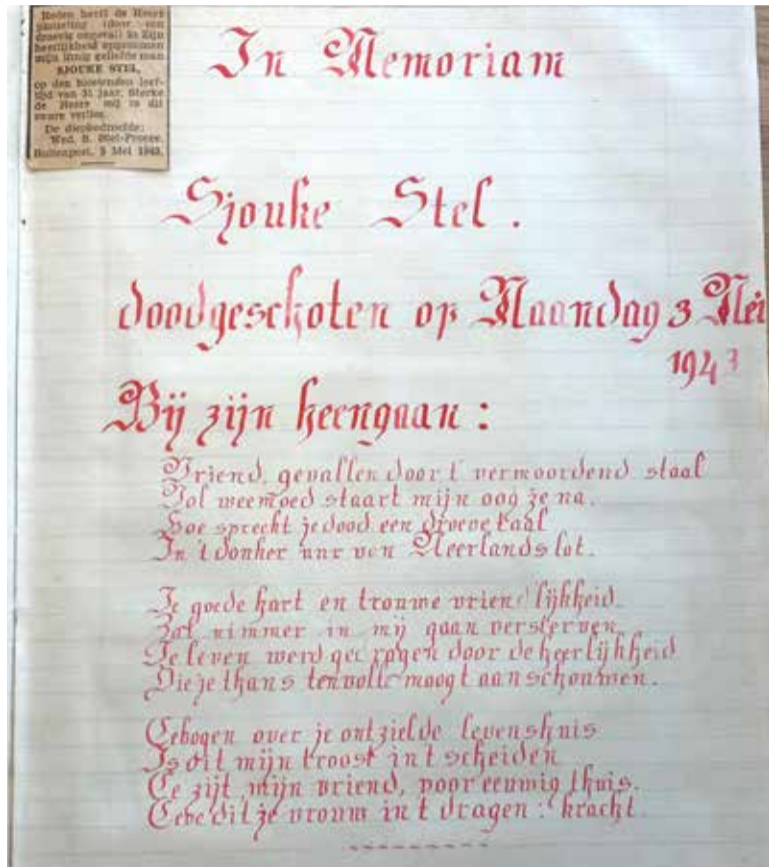 Heden heeft de Heere
plotseling (door een
droevig ongeval) in Zijn
heerlijkheid opgenomen
mijn innig geliefde man
SJOUKE STEL,
op den bloeienden leef-
tijd van 31 jaar. Sterke
de Heere mij in dit
zware verlies.
De diepbedroefde:
Wed. B. Stel-
Buitenpost, 3 Mei 1943.
In Memoriam
Sjouke Stel.
doodgeschoten op Maandag 3 Mei
1943
Bij zijn heengaan:
Vriend, gevallen door 't vermoordend staal
Vol weemoed staart mijn oog je na.
Hoe spreekt je dood een droeve taal
In 't donker uur van Neerlands lot.
Je goede hart en trouwe vriendlijkheid.
Zal nimmer in mij gaan versterven
Je leven werd gedragen door de heerlijkheid
Die je thans tenvolle moogt aanschouwen.
Gebogen over je ontzielde levenshuis
Is dit mijn troost in t scheiden
Ge zijt mijn vriend, voor eeuwig thuis.
Geve dit je vrouw in t dragen: kracht.